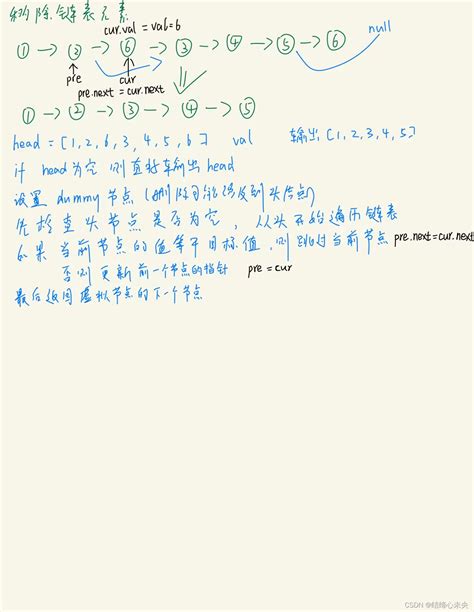 移除链表元素
cur.val = val=6
null
① → ② → ⑥ → ③ → ④ → ⑤ → ⑥
pre cur
pre.next = cur.next
① → ② → ③ → ④ → ⑤
head = [1,2,6,3,4,5,6] val 输出 [1,2,3,4,5]
if head为空 则直接输出 head
设置 dummy 节点 (删除可能涉及到头节点)
先检查头节点是否为空, 从头开始遍历链表
如果当前节点的值等于目标值, 则跳过当前节点 pre.next=cur.next
否则更新前一个节点的指针 pre = cur
最后返回虚拟节点的下一个节点
CSDN @晴绛心未央